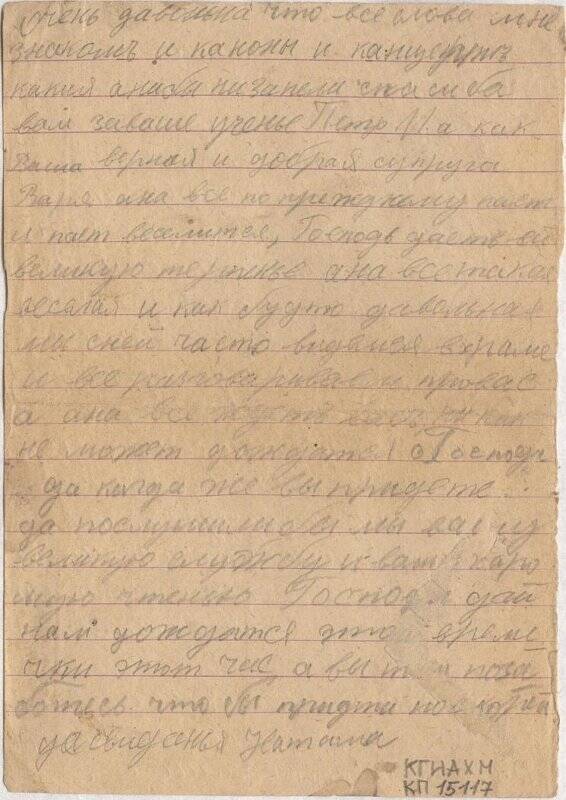 очень давольна что все слова мне
знакомъ и каноны и канцерты
какия
вам заваше ученье Петр а как
Ваша верная и добрая супруга
Варя ана все по прежднему поет
и пает веселится, Господь даеть ей
великую терпенье ана всетакая
веселая и как будто давольная
мы сней часто видимся вхраме
и все разговариваем провас
а ана все ждеть вас как
не может дождатся! о Господи
да когда же вы придете
да послушилибы мы вас
великую службу и ваше харо
шую чтенью Господи дай
нам дождатся этой времи
чки этот час, а вы там поза
ботесь что бы придти
дасвиданья Наташа
КГИАХМ
КП 15117